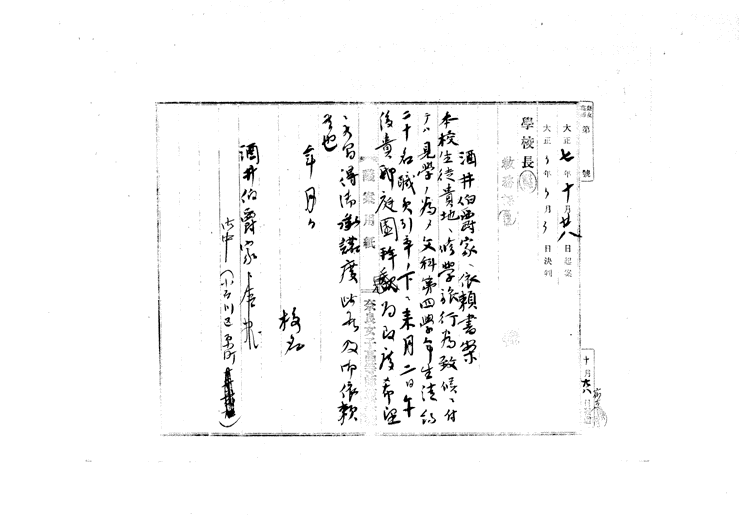 第　號
大正七年十月廿八日起案
大正〃年〃月〃日決判
學校長
酒井伯爵家ヘ依頼書案
本校生徒貴地ヘ修學旅行為致候ニ付
テハ見學ノ為メ文科第四學年生徒約
二十名職員引率ノ下ニ来月二日午
後貴邸庭園拝観為致度希望
ニ有之
得御承諾度此段及御依頼
候也
年月〃
校名
酒井伯爵家
御中（小石川区原町
議案用紙
奈良女子高等師範
十月廿八日